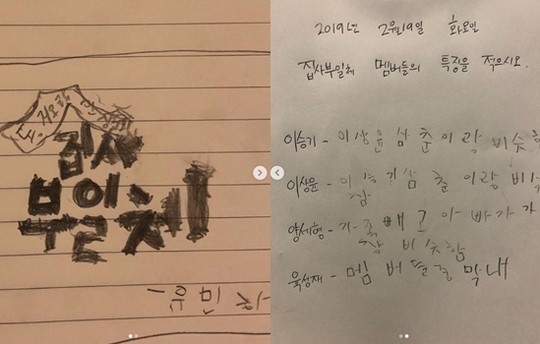 집사
부일체
2019년 2월19일 화요일
집사부일체 멤버들의 특징을 적으시오.
이승기 - 이상윤 삼촌이랑 비슷함
이상윤 - 이승기 삼촌이랑 비슷함
양세형 - 가족 빼고 아빠가 가장 비슷함
육성재 - 멤버들 중 막내